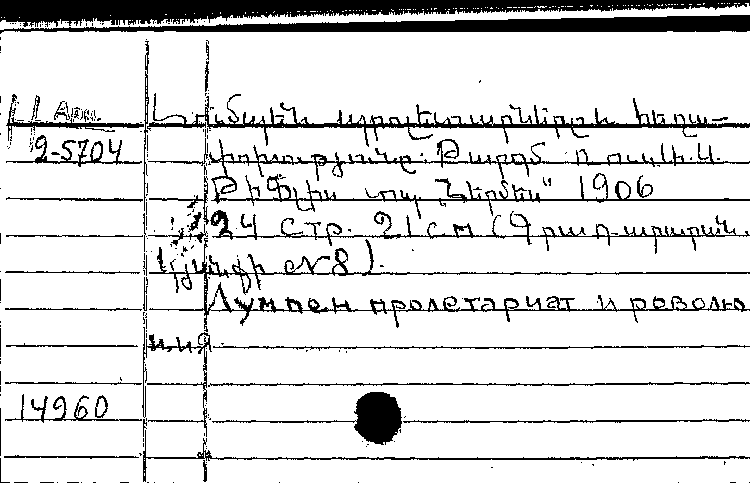 Арм.
2-5704
Լումպեն պրոլետարները և հեղա-
փոխությունը. Թարգմ. ռուսեր.
Թիֆլիս տպ. „Հերմես" 1906
24 стр. 21 см (Գրադարան
կյանքի №8).
Люмпен пролетариат и револю
ция
14960